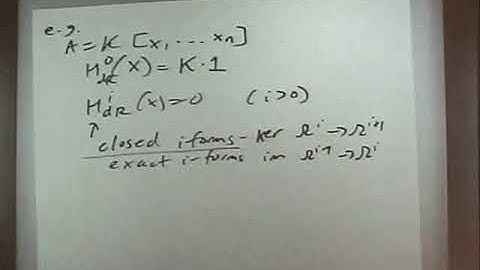 e.g.
A = K [x, ... xn]
H⁰dR(X) = K·1
Hⁱ dR (X) = 0 (i>0)
↑
closed i-forms - ker Ωⁱ → Ωⁱ⁺¹
exact i-forms im Ωⁱ⁻¹ → Ωⁱ